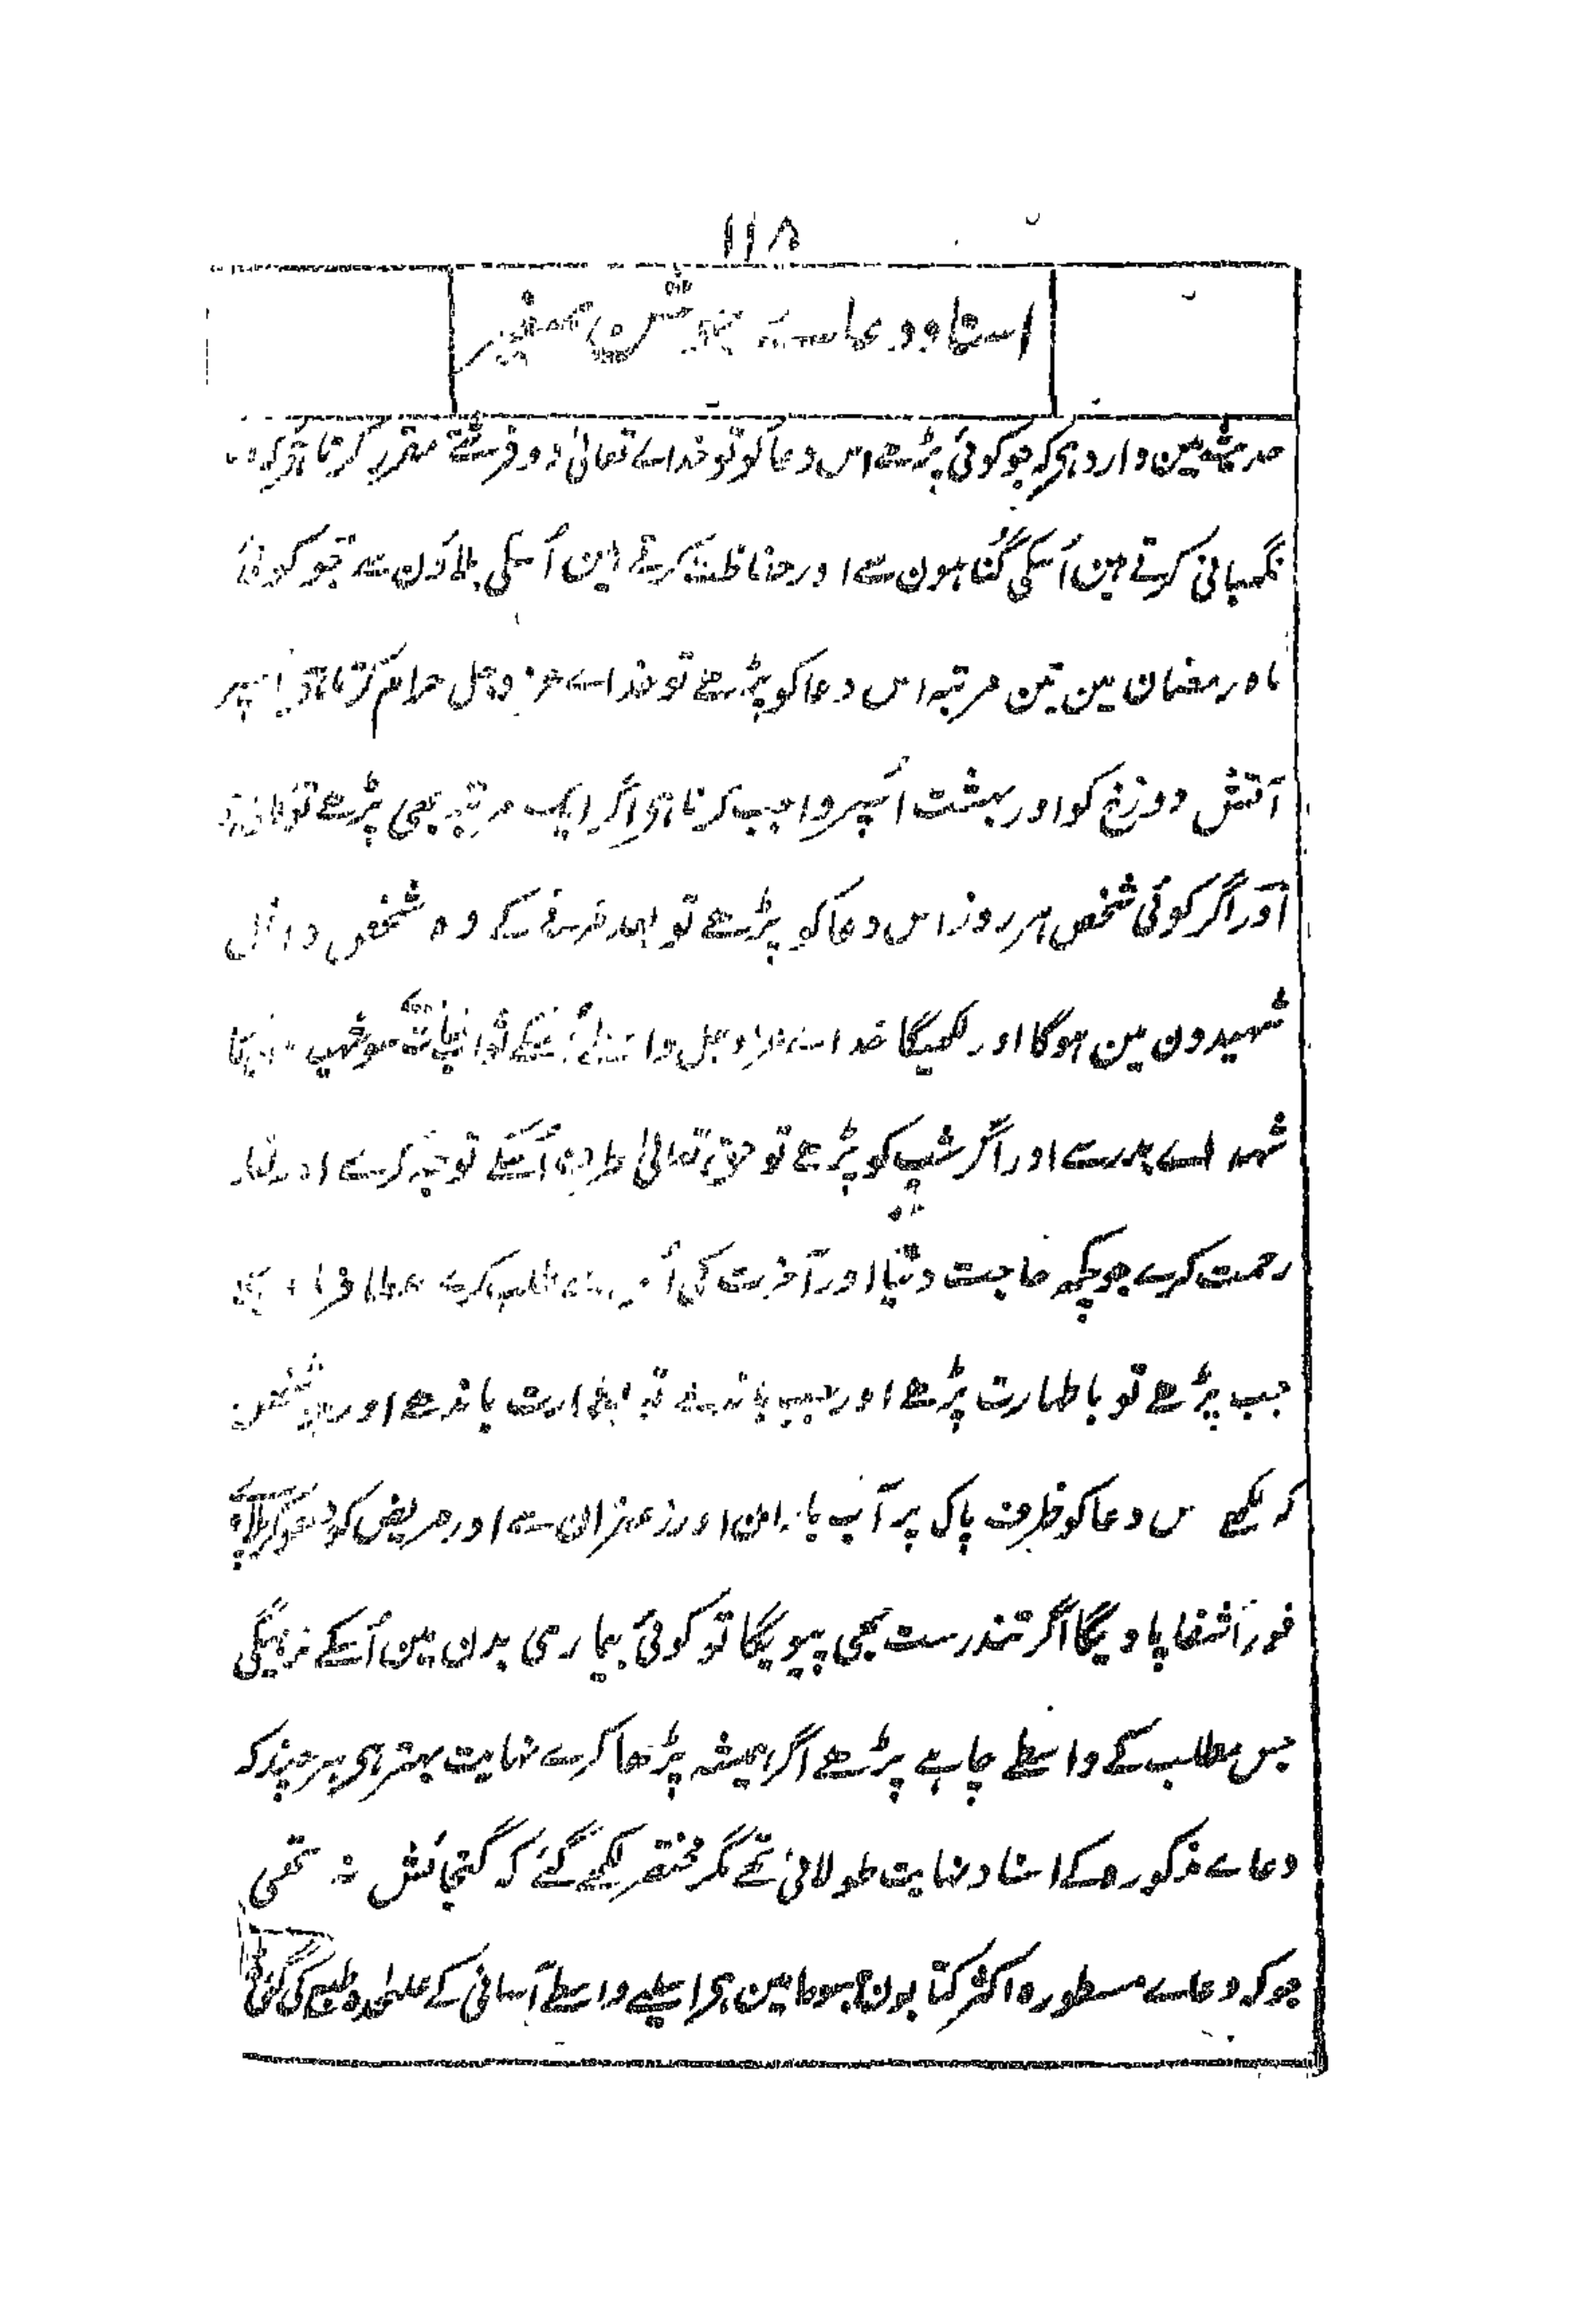 ۱۱۸
اسناد دعاے جوشن صغیر
حدیث مین وارد ہی کہ جو کوئی پڑھے اس دعا کو تو خداے تعالیٰ دو فرشتے مقرر کرتا ہی کہ
نگہبانی کرتے ہین اُسکی گناہون سے اور حفاظت کرتے ہین اُسکی بلاؤن سے جو کوئی
ماہ رمضان مین تین مرتبہ اس دعا کو پڑھے تو خداے عز وجل حرام کرتا ہی اُسپر
آتش دوزخ کو اور بہشت اُسپر واجب کرتا ہی اگر ایک مرتبہ بھی پڑھے تو
اور اگر کوئی شخص ہر روز اس دعا کو پڑھے تو بعد مرنے کے وہ شخص داخل
شہیدون مین ہوگا اور لکھیگا خداے عز وجل واسطے اُسکے ثواب
شہداے بدر سے اور اگر شب کو پڑھے تو حق تعالیٰ طرف اُسکے توجہ کرے اور نظر
رحمت کرے جو کچھ حاجت دنیا اور آخرت کی اُس سے طلب کرے عطا فرماے
جب پڑھے تو با طہارت پڑھے اور جب باندھے تو با طہارت باندھے اور جو شخص
کہ لکھے س دعا کو ظرف پاک پر آب باران اور زعفران سے اور مریض کو دھوکر پلاے
فوراً شفا پاویگا اگر تندرست بھی پیویگا تو کوئی بیماری بدن مین اُسکے نرہیگی
جس مطلب کے واسطے چاہے پڑھے اگر ہمیشہ پڑھا کرے نہایت بہتر ہی ہر چند کہ
دعاے مذکورہ کے اسناد نہایت طولانی تھے مگر مختصر لکھے گئے کہ گنجائش نہ تھی
جو کہ دعاے مسطورہ اکثر کتابون مبسوط مین ہی اسلیے واسطے آسانی کے علٰحدہ طبع کی گئی